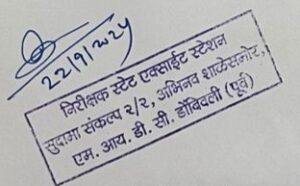 22/9/2024
निरीक्षक स्टेट एक्साईट स्टेशन
सुदामा संकल्प २/२, अभिनव शाळेसमोर,
एम. आय. डी. सी. डोंबिवली (पूर्व)